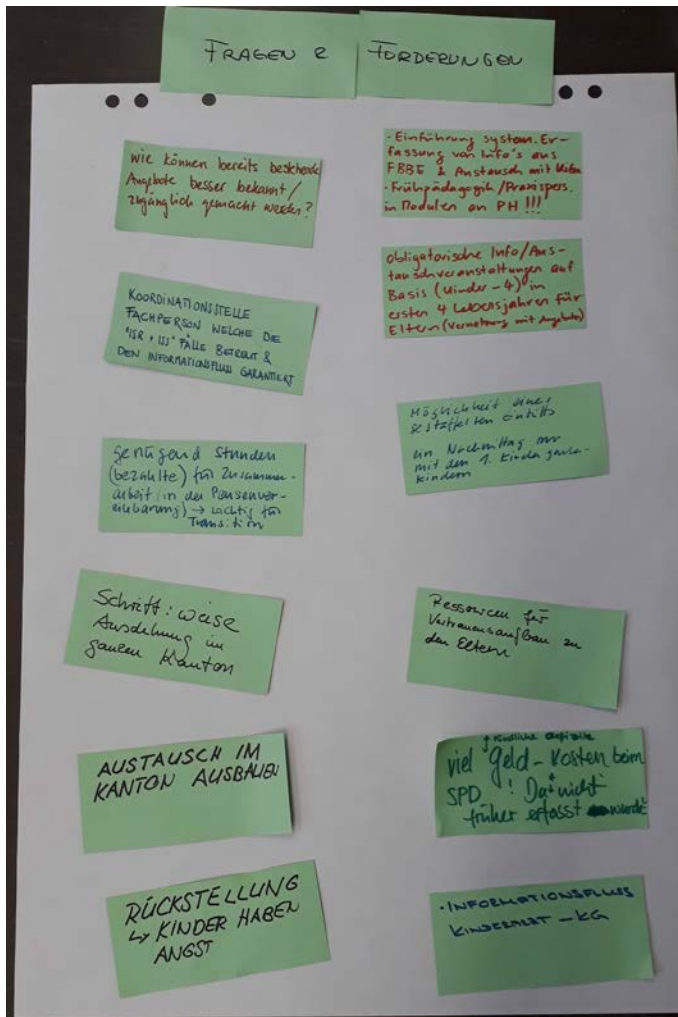 FRAGEN & FORDERUNGEN
wie können bereits bestehende
Angebote besser bekannt/
zugänglich gemacht werden?
KOORDINATIONSSTELLE
FACHPERSON WELCHE DIE
"ISR + ISS" FÄLLE BETREUT &
DEN INFORMATIONSFLUSS GARANTIERT
genügend Stunden
(bezahlte) für Zusammen-
arbeit (in der Pensenver-
einbarung) → wichtig für
Transition
Schritt: weise
Ausdehnung im
ganzen Kanton
AUSTAUSCH IM
KANTON AUSBAUEN
RÜCKSTELLUNG
↳ KINDER HABEN
ANGST
- Einführung system. Er-
fassung von Info's aus
FBBE & Austausch mit Kitas
- Frühpädagogik/Praxispers.
in Modulen an PH!!!
obligatorische Info/Aus-
tauschveranstaltungen auf
Basis (Kinder-4) in
ersten 4 Lebensjahren für
Eltern (Vernetzung mit Angebote)
Möglichkeit eines
gestaffelten Eintritts
ein Nachmittag nur
mit den 1. Kindergarten-
kindern
Ressourcen für
Vertrauensaufbau zu
den Eltern
↑ kindliche Defizite
viel Geld-Kosten beim
SPD! Da nicht
früher erfasst wurde
· INFORMATIONSFLUSS
KINDERARZT – KG